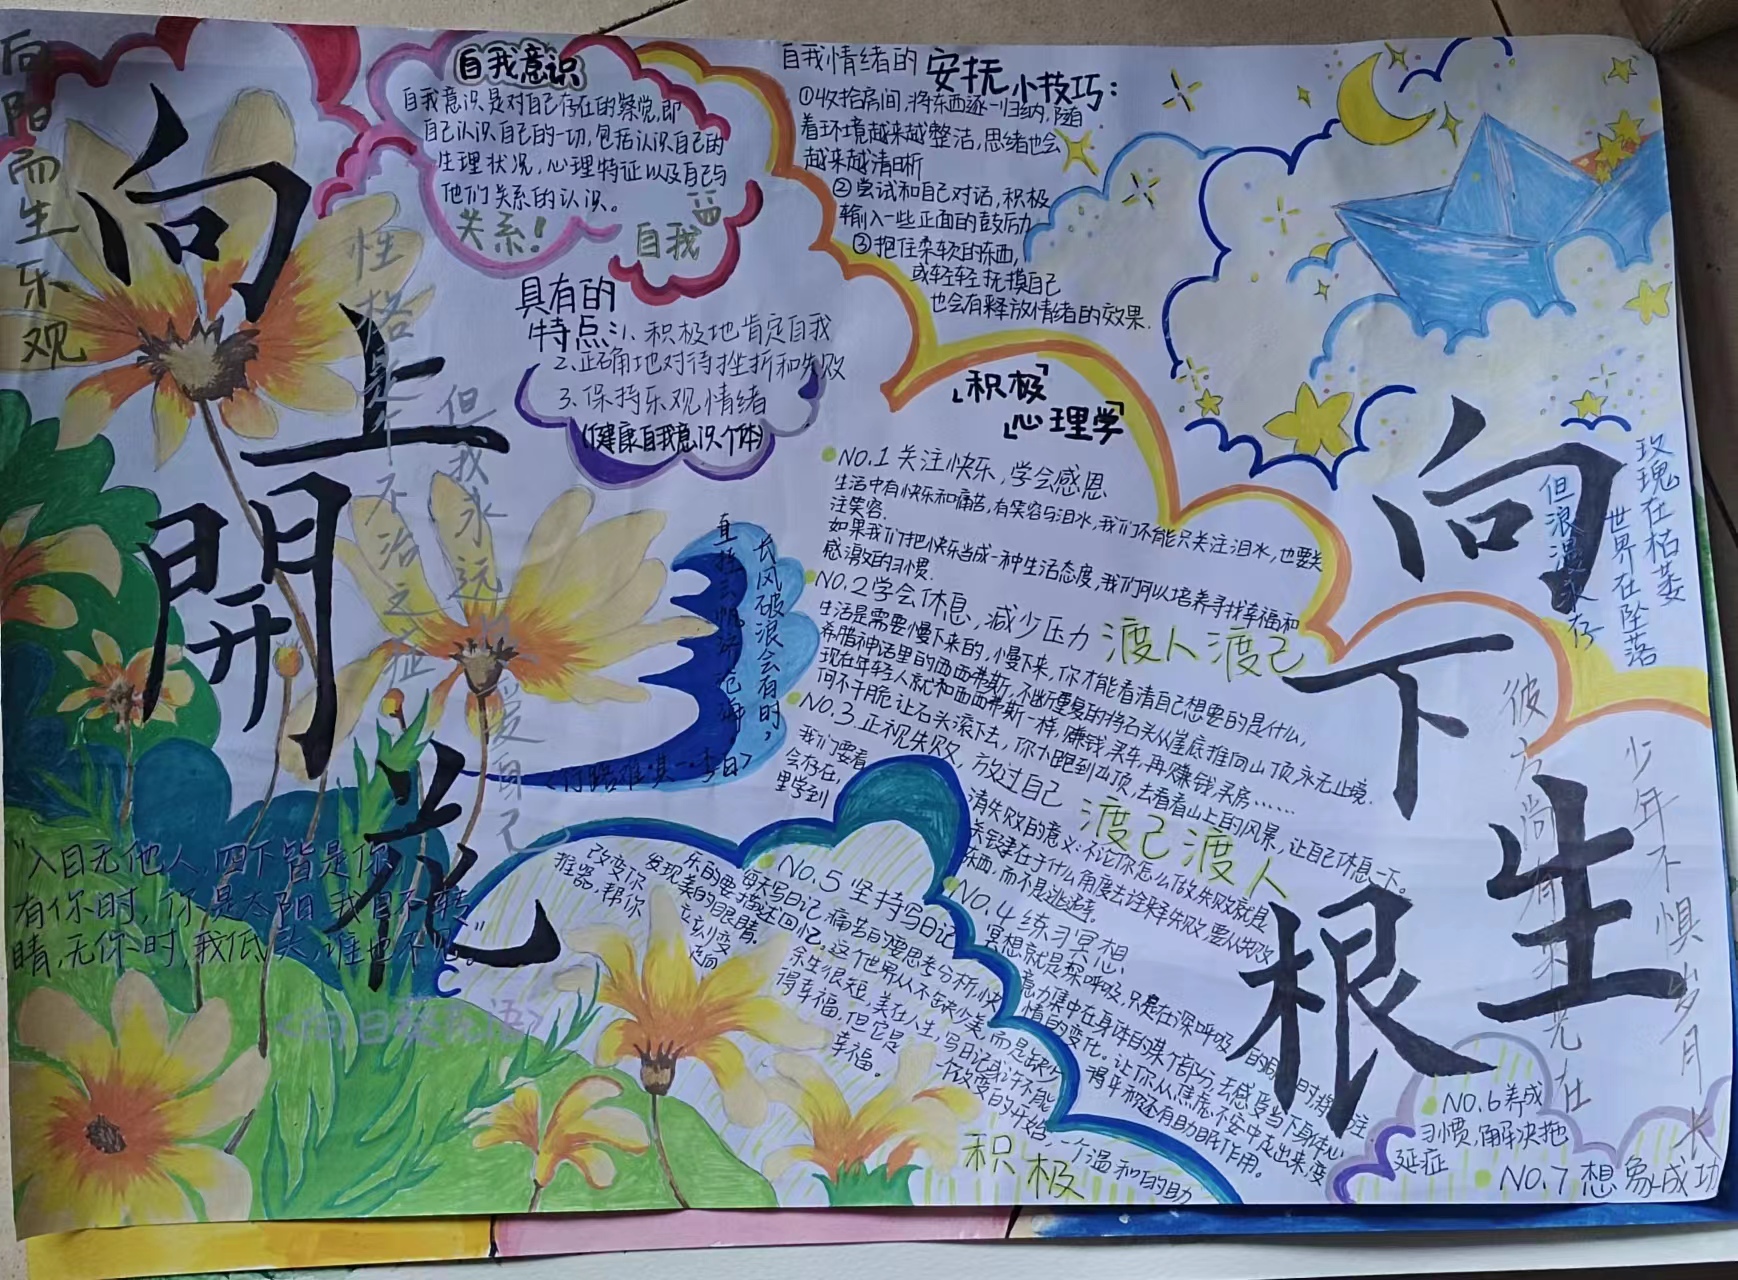 向阳而生乐观
向上
開花
自我意识
自我意识是对自己存在的察觉,即
自己认识自己的一切,包括认识自己的
生理状况,心理特征以及自己与
他们关系的认识。
关系!
自我
具有的
特点:1、积极地肯定自我
2、正确地对待挫折和失败
3、保持乐观情绪
(健康自我意识个体)
性格是个不治之症
但我永远
爱自己
长风破浪会有时,
直挂云帆济沧海
<行路难·其一·李白>
"入目无他人,四下皆是你,
有你时,你是太阳,我目不转
睛,无你时,我低头,谁也不见。"
自我情绪的安抚小技巧:
①收拾房间,将东西逐一归纳,随
着环境越来越整洁,思绪也会
越来越清晰
②尝试和自己对话,积极
输入一些正面的鼓励
③抱住柔软的东西,
或轻轻抚摸自己
也会有释放情绪的效果.
「积极」
「心理学」
NO.1关注快乐,学会感恩
生活中有快乐和痛苦,有笑容与泪水,我们不能只关注泪水,也要关
注笑容.
如果我们把快乐当成一种生活态度,我们可以培养寻找幸福和
感激的习惯.
NO.2学会休息,减少压力
渡人渡己
生活是需要慢下来的,慢下来,你才能看清自己想要的是什么,
希腊神话里的西西弗斯,不断重复的将石头从崖底推向山顶,永无止境.
现在年轻人就和西西弗斯一样,赚钱,买车,再赚钱,买房……
何不干脆让石头滚下去,你大跑到山顶,去看看山上的风景,让自己休息一下。
NO.3正视失败,放过自己
渡己渡人
我们要看
清失败的意义:不论你怎么做,失败就是
会存在,
关键在于什么角度去诠释失败,要从失败
里学到
东西,而不是逃避。
NO.4练习冥想
冥想就是深呼吸,只是在深呼吸
意力集中在身体的某个部分,去感受当下身体心
情的变化。让你从焦虑不安中走出来,变
得平积还有助眠作用。
NO.5坚持写日记
每天写日记,痛苦的要思考分析,快
乐的要描述回忆,这个世界从不缺少美,而是缺少
发现美的眼睛。
余生很短,美在人生,写日记或许不能
改变你
得幸福,但它是一个改变的开始,一个温和的助
推器,帮你
幸福。
积极
NO.6养成
习惯,解决拖
延症
NO.7想象成功
向下
生根
玫瑰在枯萎
世界在坠落
但浪漫永存
彼方尚有荣光在
少年不惧岁月长